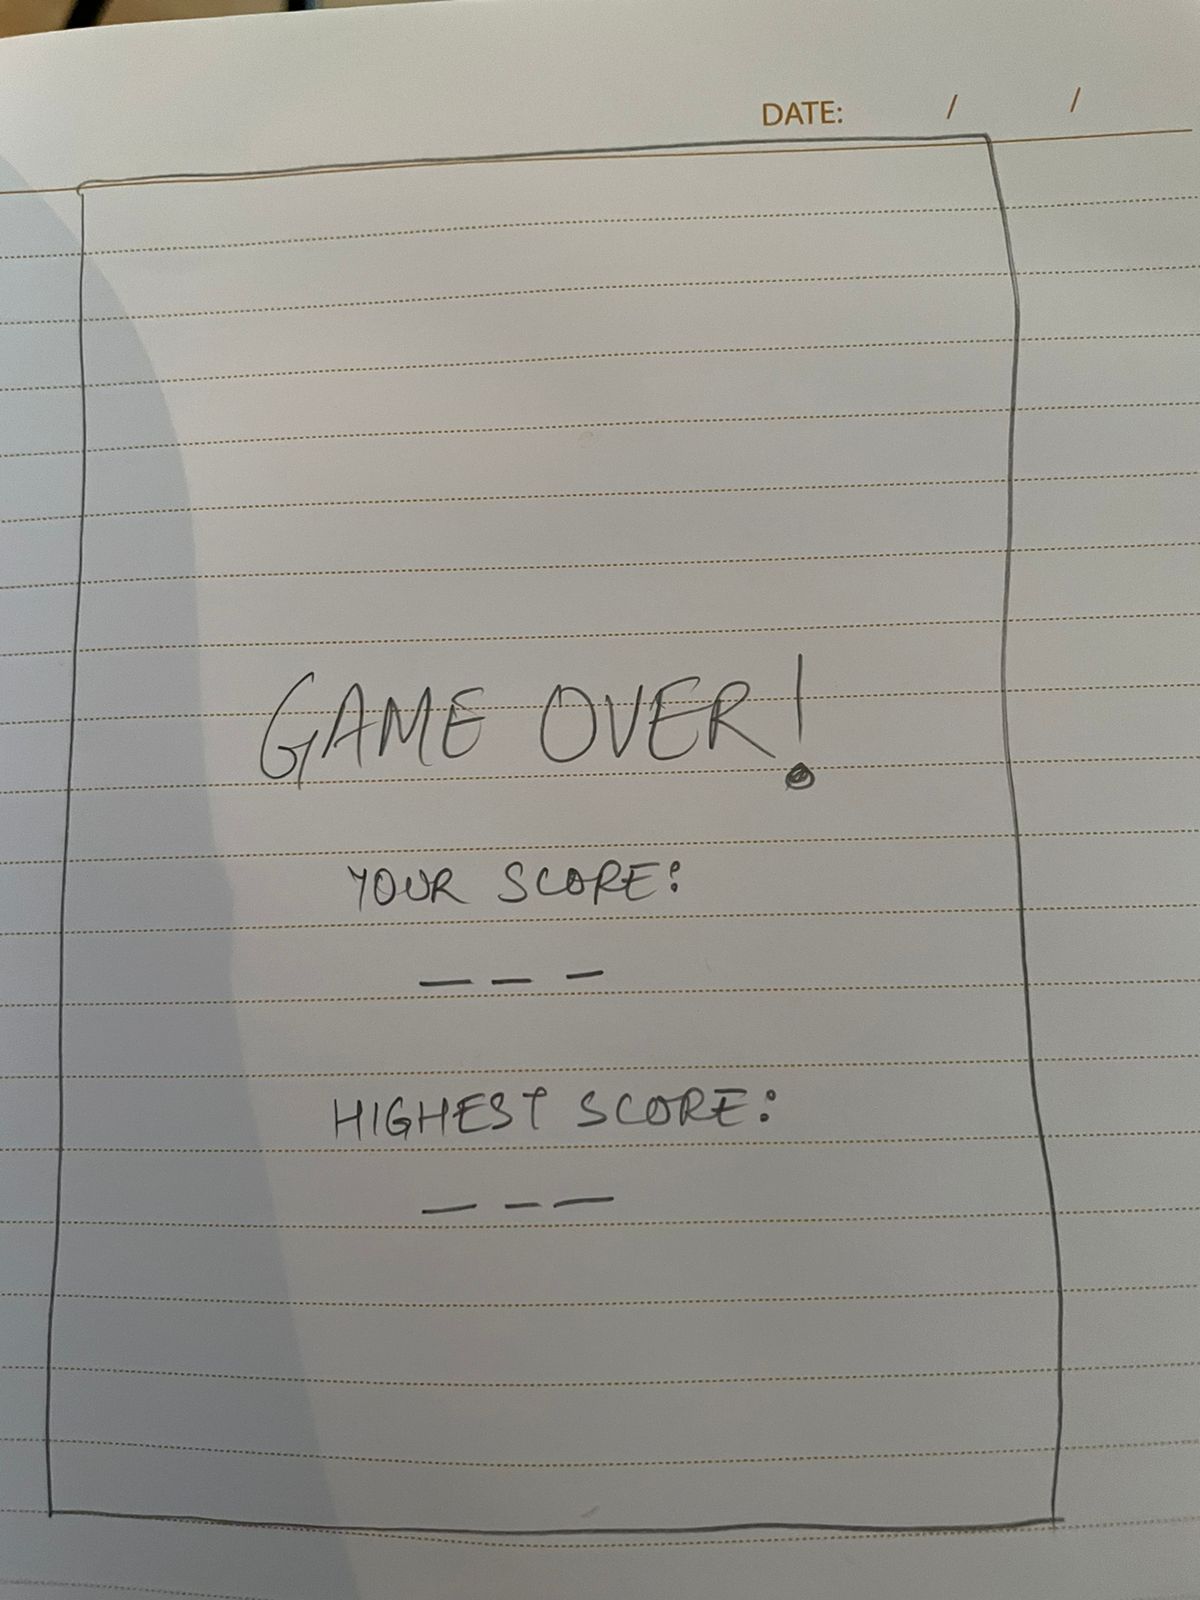 DATE: / /
GAME OVER!
YOUR SCORE:
_ _ _
HIGHEST SCORE:
_ _ _